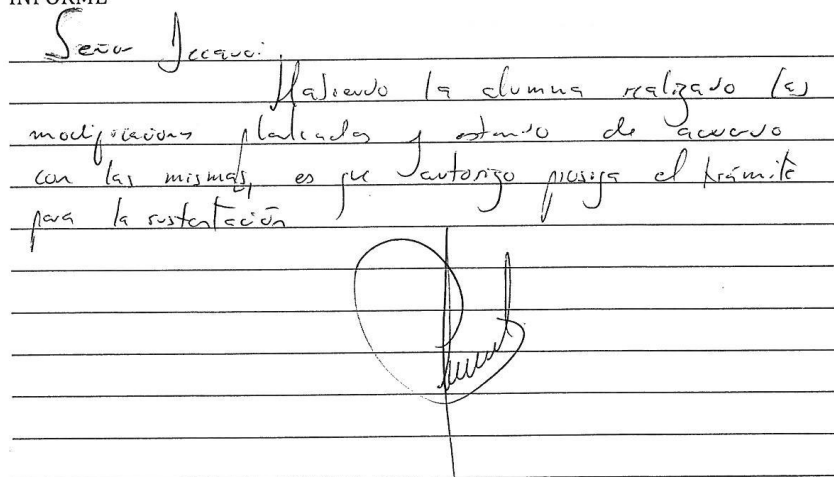 INFORME
Señor Decano:
Habiendo la alumna realizado las
modificaciones planteadas y estando de acuerdo
con las mismas, es que autorizo prosiga el trámite
para la sustentación